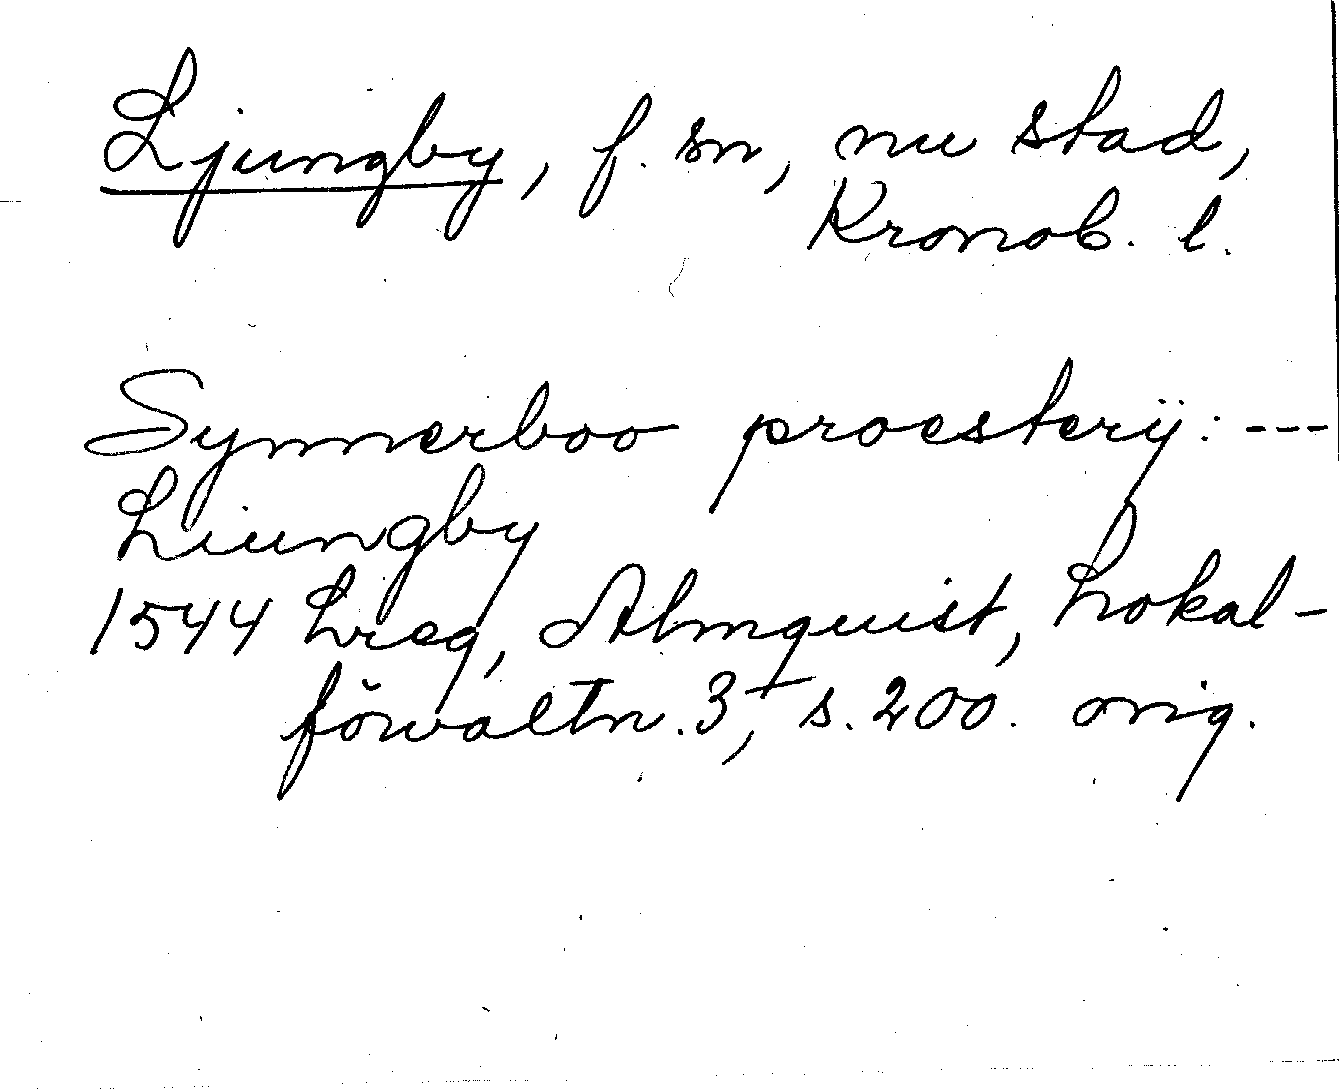 Ljungby, f. sn, nu stad,
Kronob. l.
Synnerboo proesterÿ: ---
Liungby
1544 Lreg, Almquist, Lokal-
förvaltn. 3, s. 200. orig.